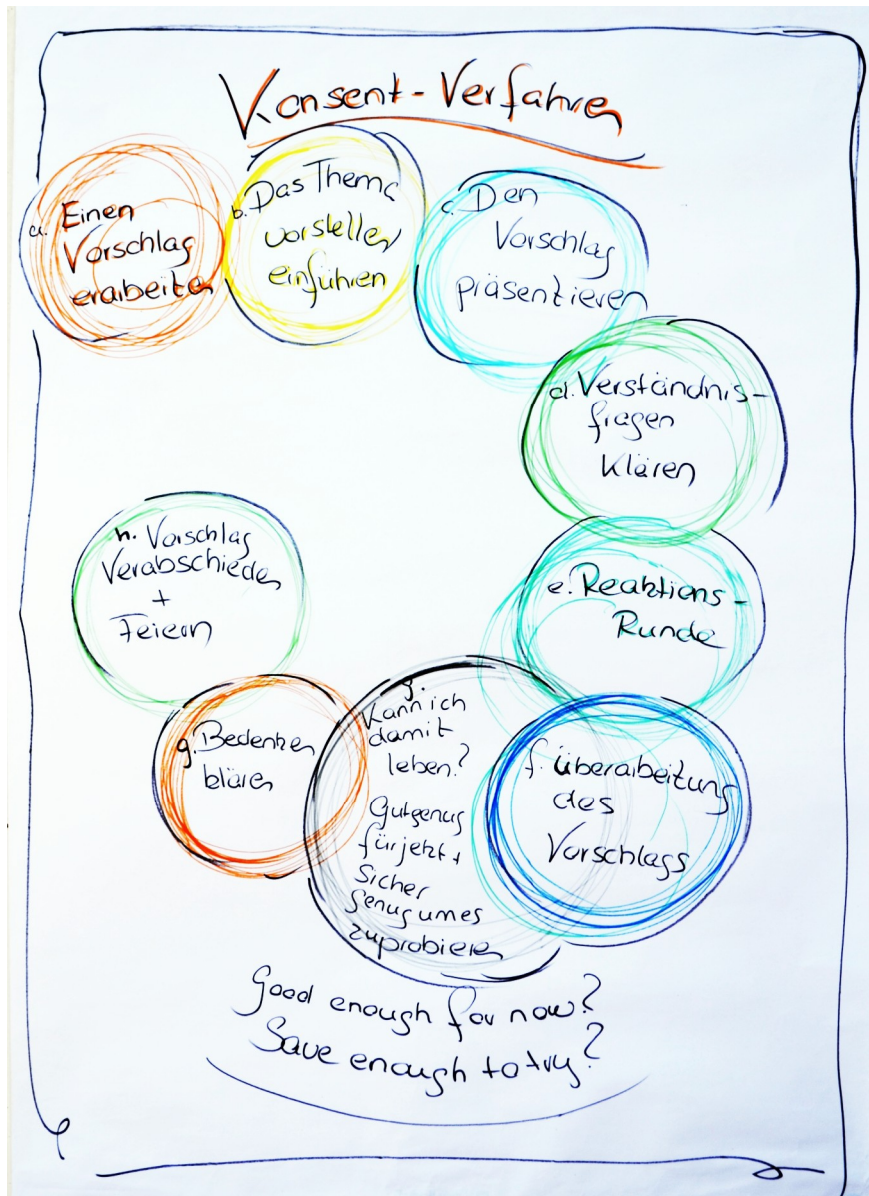 Konsent-Verfahren
a. Einen
Vorschlag
erarbeiten
b. Das Thema
vorstellen/
einführen
c. Den
Vorschlag
präsentieren
d. Verständnis-
fragen
klären
e. Reaktions-
Runde
f. Überarbeitung
des
Vorschlags
g.
Kann ich
damit
leben?
Gut genug
für jetzt +
Sicher
genug um es
zuprobieren
g. Bedenken
klären
h. Vorschlag
Verabschieden
+
Feiern
Good enough for now?
Save enough to try?